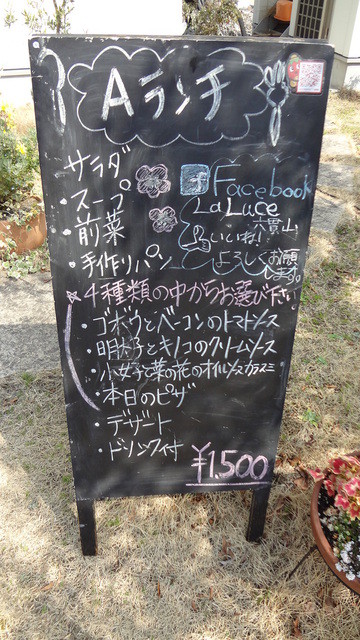 Aランチ
・サラダ
・スープ
・前菜
・手作りパン
Facebook
La Luce
大貫山
いいね!
よろしくお願
します。
☆4種類の中からお選び下さい
・ゴボウとベーコンのトマトソース
・明太子とキノコのクリームソース
・小女子と菜の花のオイルソースカラスミ
・本日のピザ
・デザート
・ドリンク付
¥1,500